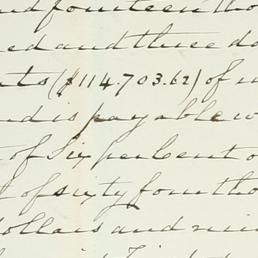 nd fourteen tho
ed and three do
nts ($114.703.62) of
nd is payable w
of Six per Cent o
of sixty four tho
dollars and nin